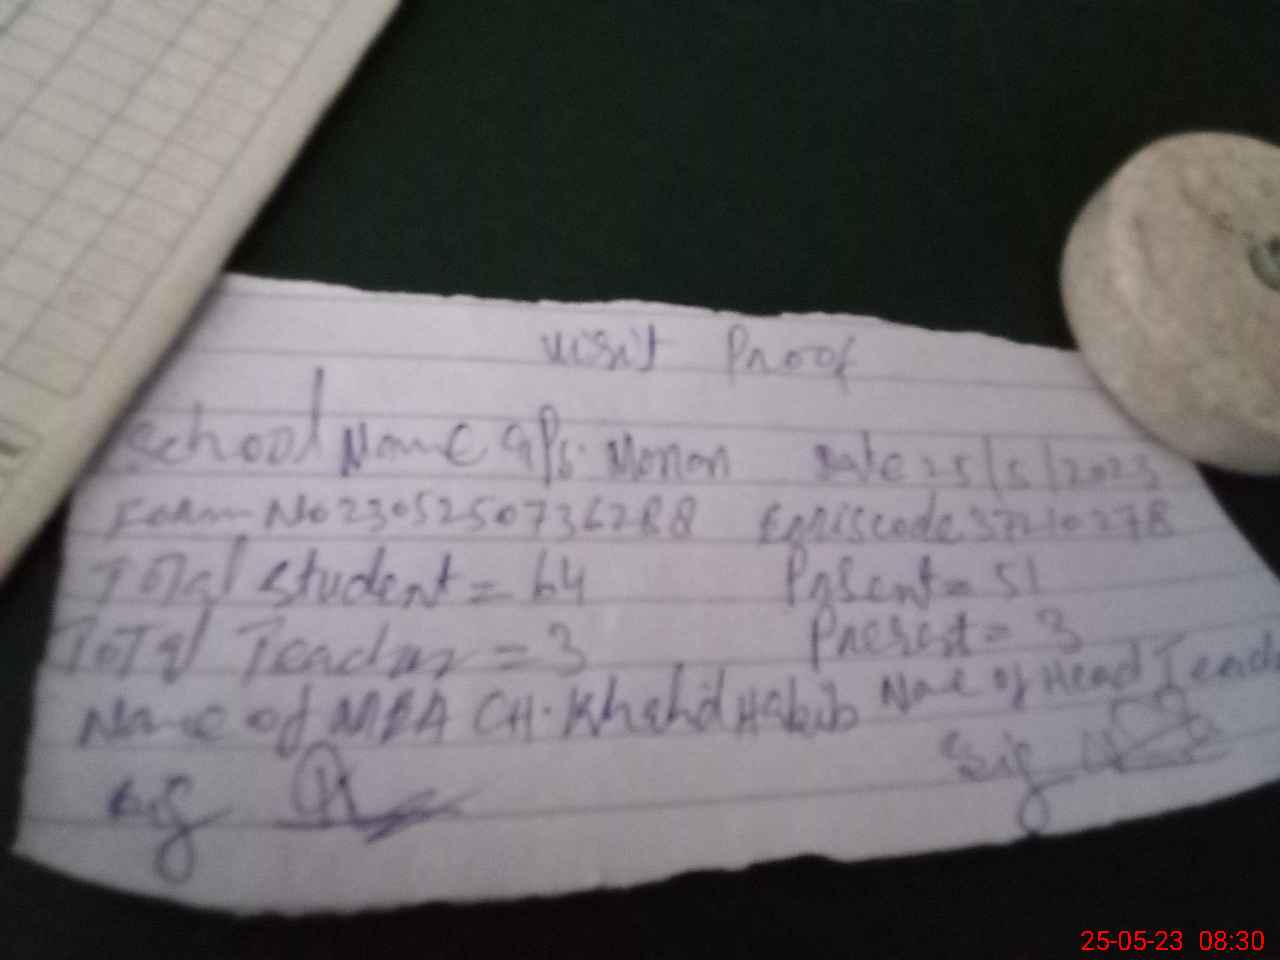 Visit Proof
School Name GPS. Monan Date 25/5/2023
Form No 2305250736288 Emiscode 37210278
Total Student = 64 Present = 51
Total Teacher = 3 Present = 3
Name of MEA CH. Khalid Habib Name of Head Teach
Sig Sig
25-05-23 08:30